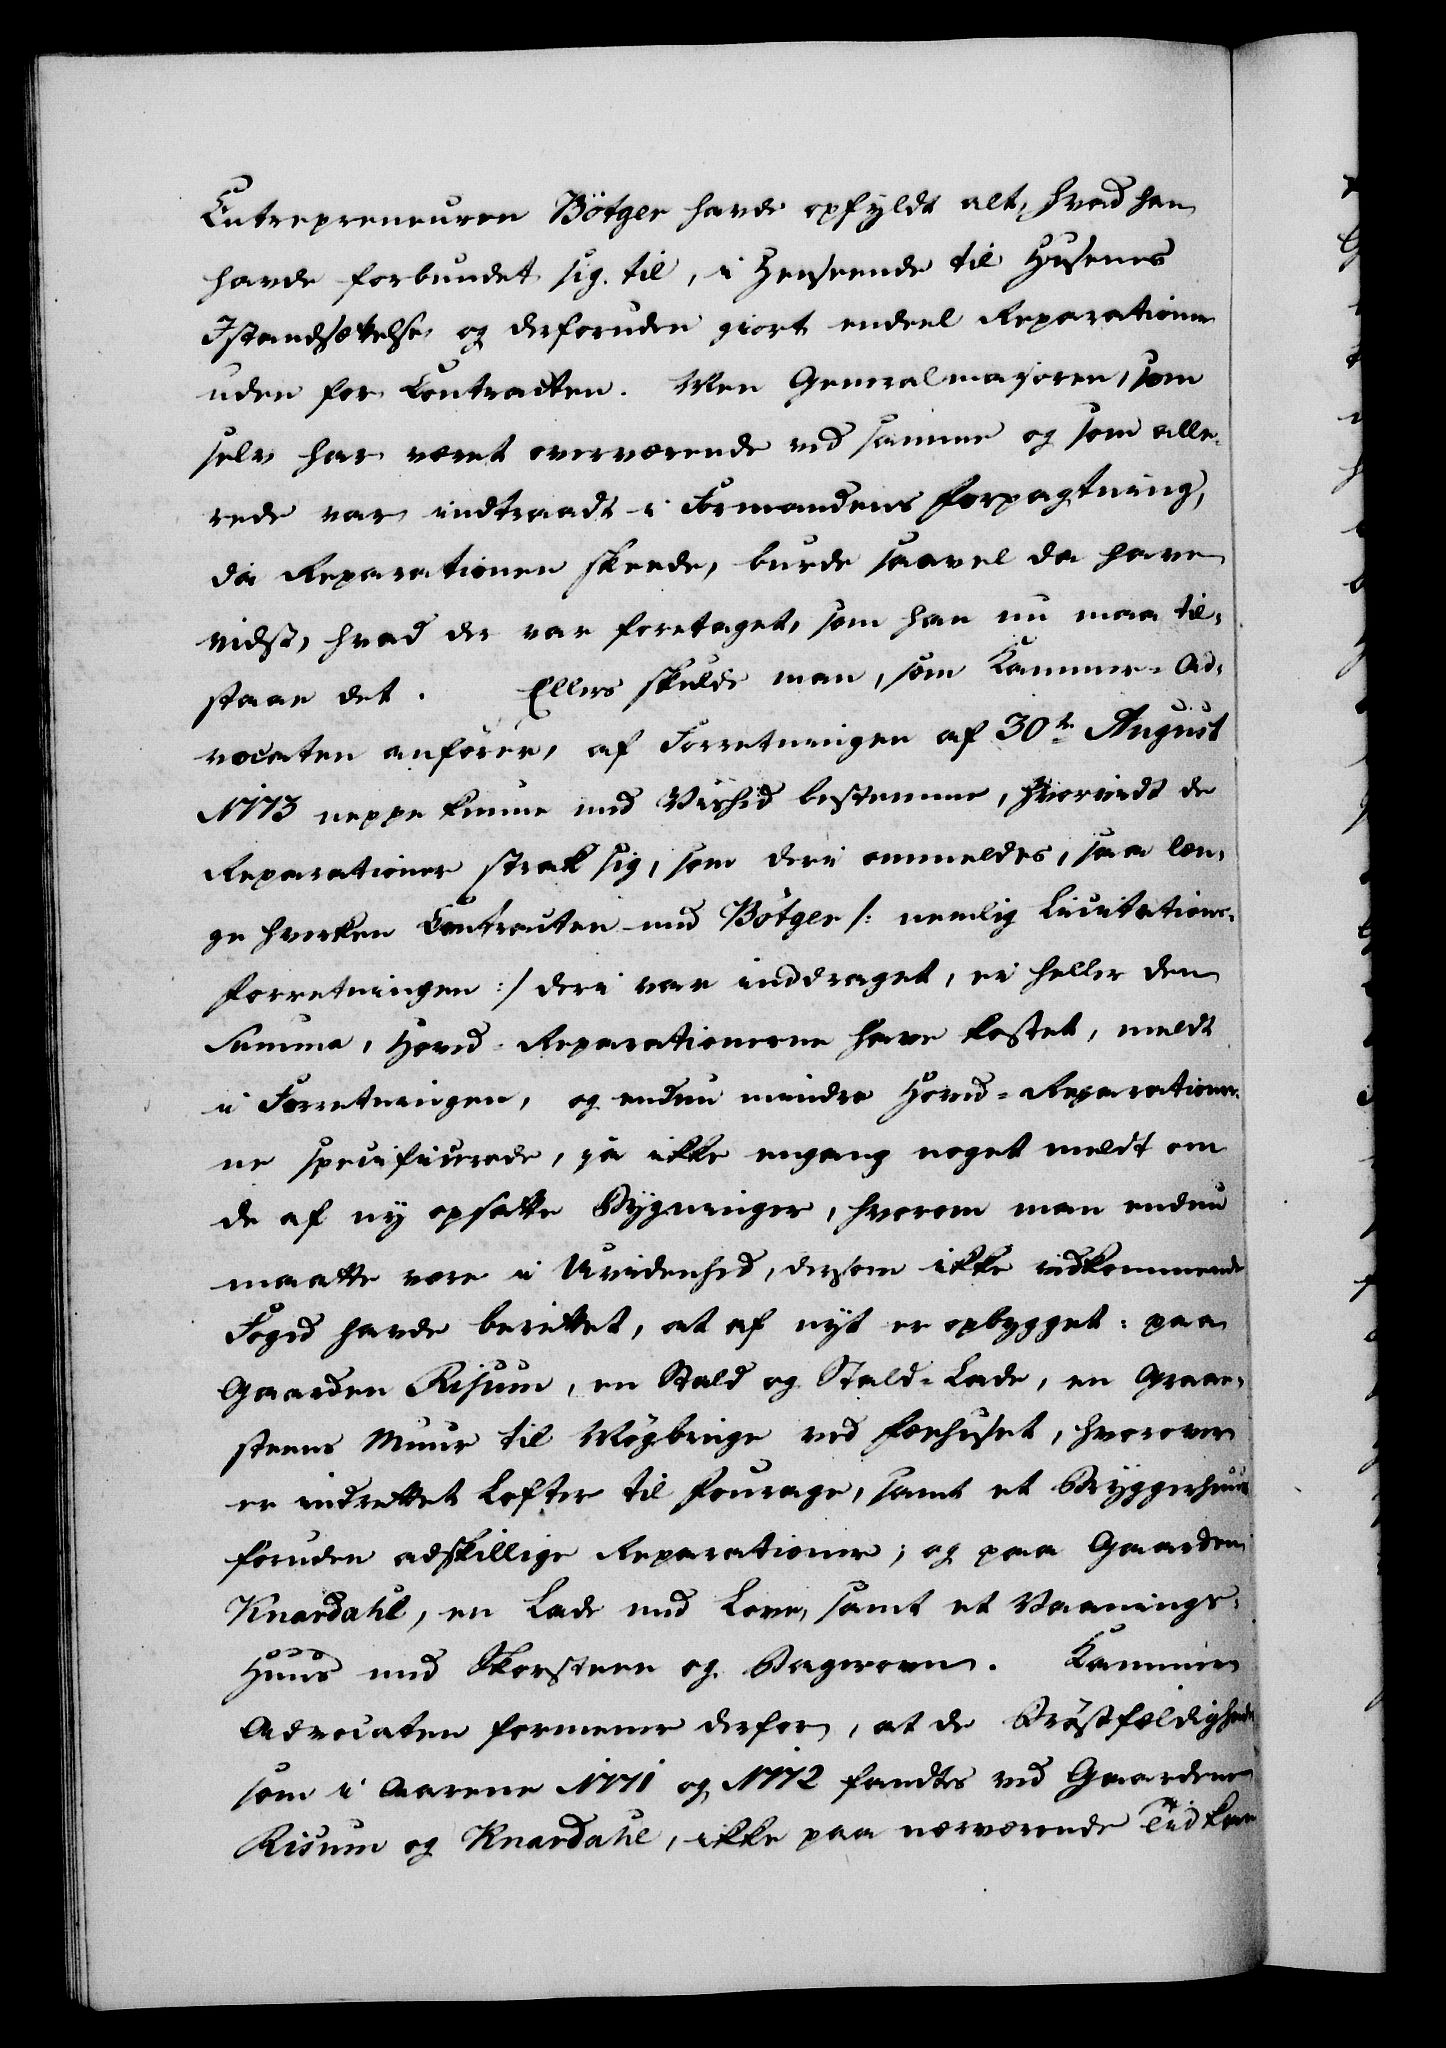 Entrepreneuren Bötger havde opfyldt alt, hvad han
havde forbundet sig til, i Henseende til Husenes
Istandsættelse og desforuden giort endeel Reparationer
uden for Contracten. Men Generalmajoren, som
selv har været overværende ved samme og som alle-
rede var indtraadt i Formandens Forpagtning,
da Reparationen skeede, burde saavel da have
vidst, hvad der var foretaget, som han nu maa til-
staae det. Ellers skulde man, som Kammer-Ad-
vocaten anfører, af Forretningen af 30te August
1773 neppe kunne med Vished bestemme, hvorvidt de
Reparationer strak sig, som deri ommeldes, saa læn-
ge hverken Contracten med Bötger /: nemlig Licitations-
forretningen :/ deri var inddraget, ei heller den
Summa, Hoved-Reparationerne have kostet, meldt
i Forretningen, og endnu mindre Hoved-Reparationer-
ne specificerede, ja ikke engang noget meldt om
de af ny opsatte Bygninger, hvorom man endnu
maatte være i Uvidenhed, dersom ikke vedkommende
Foged havde berettet, at af nyt er opbygget: paa
Gaarden Risum, en Stald og Stald-Lade, en Graae-
steens Muur til Mögbinge ved Fæehuset, hvorover
er indrettet Lofter til Fourage, samt et Bryggerhuus
foruden adskillige Reparationer; og paa Gaarden
Knardahl, en Lade med Love, samt et Vaanings-
Huus med Skorsteen og Bagerovn. Kammer
Advocaten formener derfor, at de Bröstfældigheder
som i Aarene 1771 og 1772 fandtes ved Gaardene
Risum og Knardahl, ikke paa nærværende Tid kan